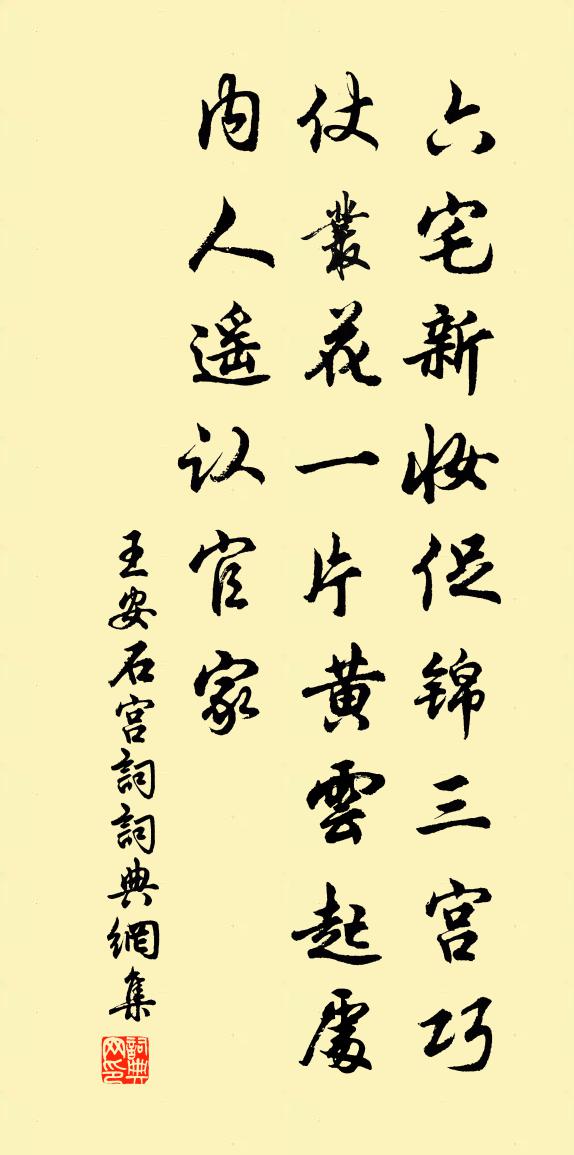 六宅新妆促锦三宫巧
仗叢花一片黄雲起處
内人遥认官家
王安石宫詞詞典網集
詞典网印